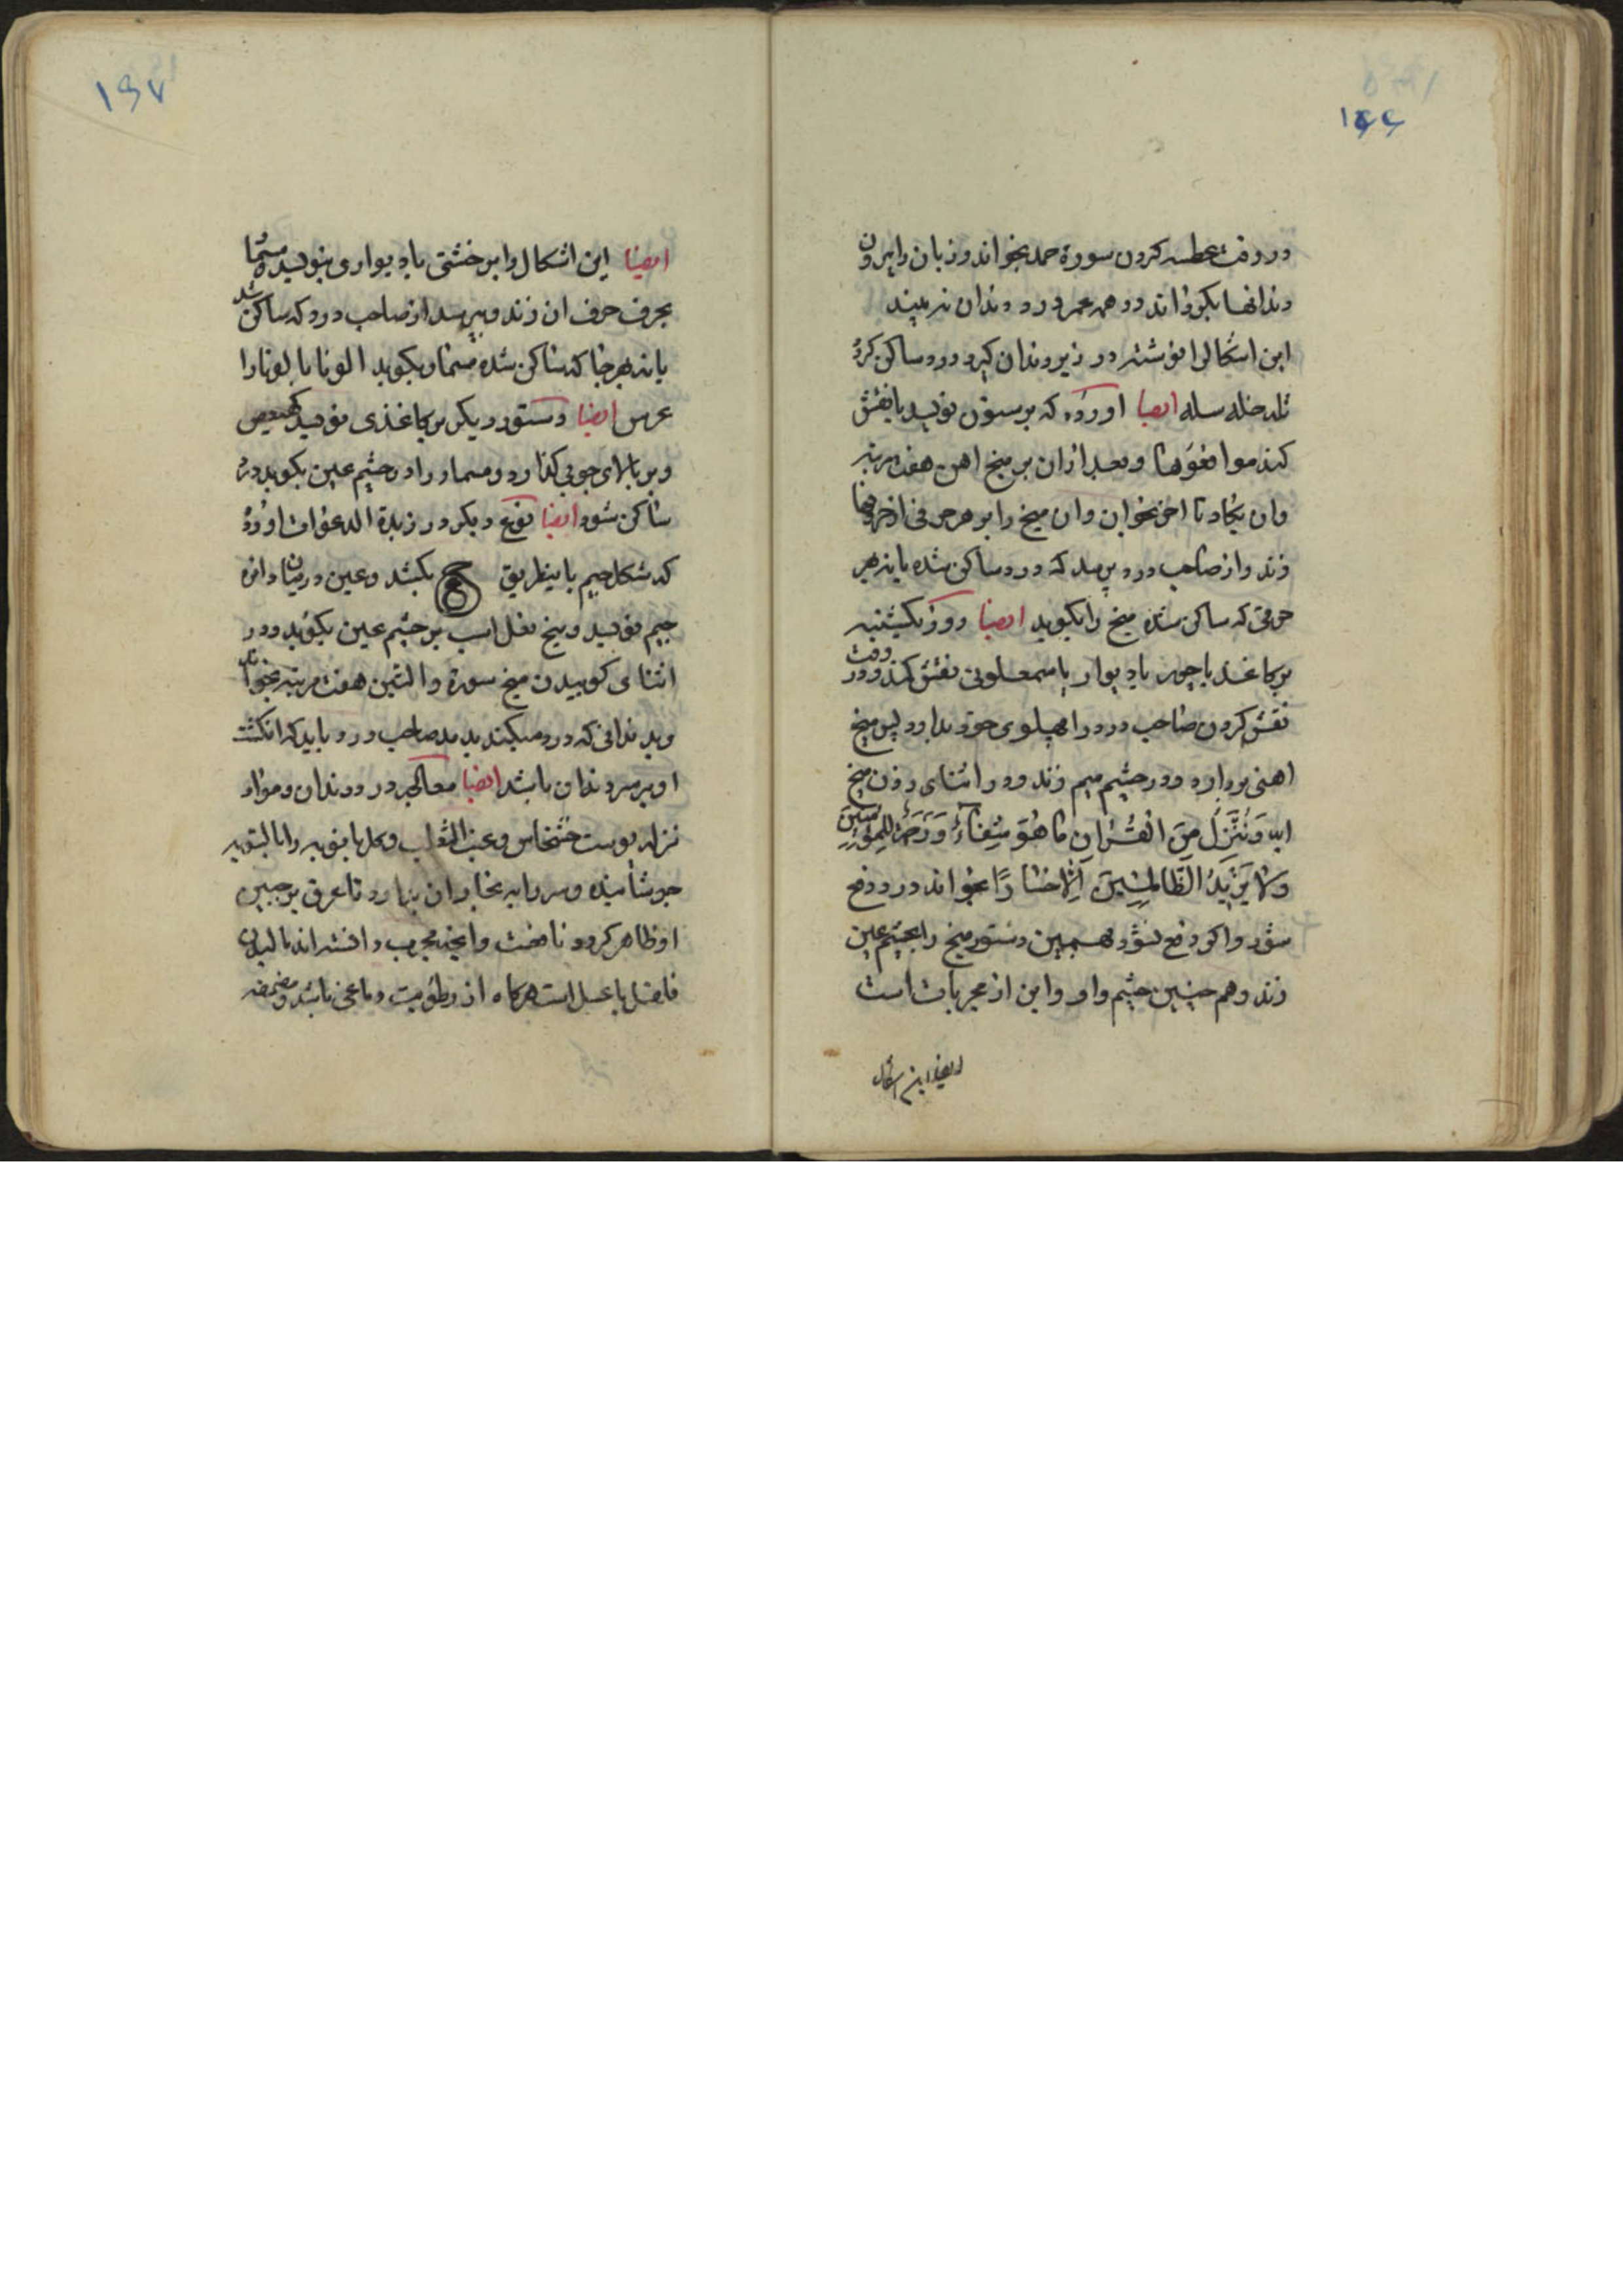 ۱۶۶
در وقت عطسه کردن سورة حمد بخواند و زبان را بیرون
دندانها بگرداند در همه عمر درد دندان نه بیند
این اشکالرا نوشته در زیر دندان گیرد درد ساکن گردد
سله ایضا اورده که بر ستون نویسد یا نقش
کند و بعد ازان بر میخ اهن هفت مرتبه
وان یکاد تا اخر بخواند وان میخ را بر هر حرفی از حروفها
زند و از صاحب درد پرسد که درد ساکن شده یا نه بهر
حرفی که ساکن شده میخ را بکوبد ایضا روز یکشنبه
بر کاغذ یا چوب یا دیوار یا نقش کند و در وقت
نقش کردن صاحب درد را بپهلوی خود بدارد پس میخ
اهنی بردارد و در چشم میم زند و در اثنای زدن میخ
ایه وَنُنَزِّلُ مِنَ الْقُرْانِ مَا هُوَ شِفَاءٌ وَرَحْمَةٌ لِلْمُؤْمِنِینَ
وَلَا یَزِیدُ الظَّالِمِینَ اِلَّا خَسَارًا بخواند درد دفع
شود و اگر دفع نشود بهمین دستور میخ را بچشم عین
زند و هم چنین چشم واو و این از مجربات است
ایضا این اشکال
۱۶۷
ایضا این اشکال را بر خشتی یا دیواری بنویسد و مسمار
بحرف حرف ان زند و بپرسد از صاحب درد که ساکن شد
یا نه بهر جا که ساکن شده مسمار بکوبد
ایضا دستور دیگر بر کاغذی نویسد کهیعص
و بر بالای چوبی گذارد و مسمار را در چشم عین بکوبد درد
ساکن شود ایضا نوع دیگر در زبدة الدعوات اورده
که شکل جیم باینطریق ج بکشد و عین در میان دائره
جیم نویسد و میخ نعل اسب بر چشم عین بکوبد و در
اثنای کوبیدن میخ سورة والتین هفت مرتبه بخواند
و بدندانی که درد میکند بدمد صاحب درد باید که انگشت
او بر سر دندان باشد ایضا معالجه درد دندان و مواد
نزله پوست خشخاش و عنب الثعلب و گل بابونه را بالسویه
جوشانیده و سر را به بخار ان بدارد تا عرق بر جبین
او ظاهر گردد
فاضل با عسل است هرگاه از رطوبت دماغی باشد و مضمضه